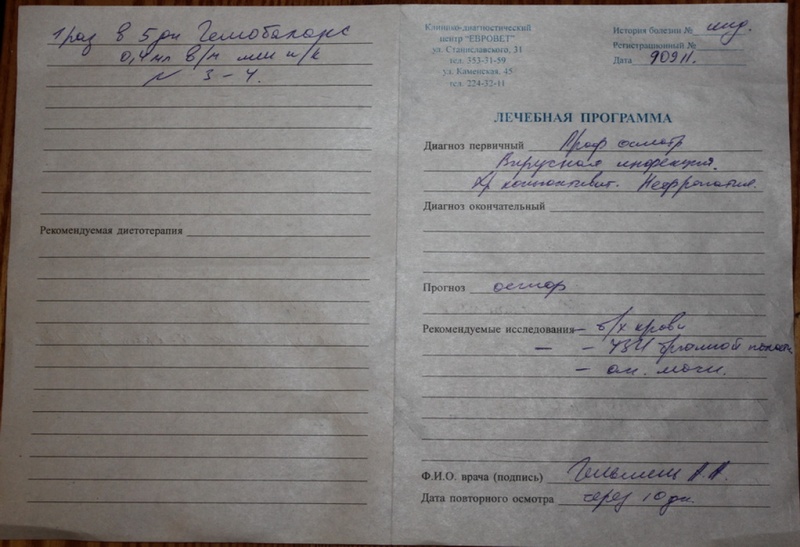 1 раз в 5 дн Гемобаланс
0,4 мл в/м или п/к
№ 3-4.
Рекомендуемая диетотерапия
Клинико-диагностический
центр "ЕВРОВЕТ"
ул. Станиславского, 31
тел. 353-31-59
ул. Каменская, 45
тел. 224-32-11
История болезни №
Регистрационный №
Дата 90911.
ЛЕЧЕБНАЯ ПРОГРАММА
Диагноз первичный Проф осмотр
Вирусная инфекция.
Хр конъюктивит. Нефропатия.
Диагноз окончательный
Прогноз остор
Рекомендуемые исследования – б/х крови
– – УЗИ брюшной полости
– ан. мочи.
Ф.И.О. врача (подпись) А.А.
Дата повторного осмотра через 10 дн.